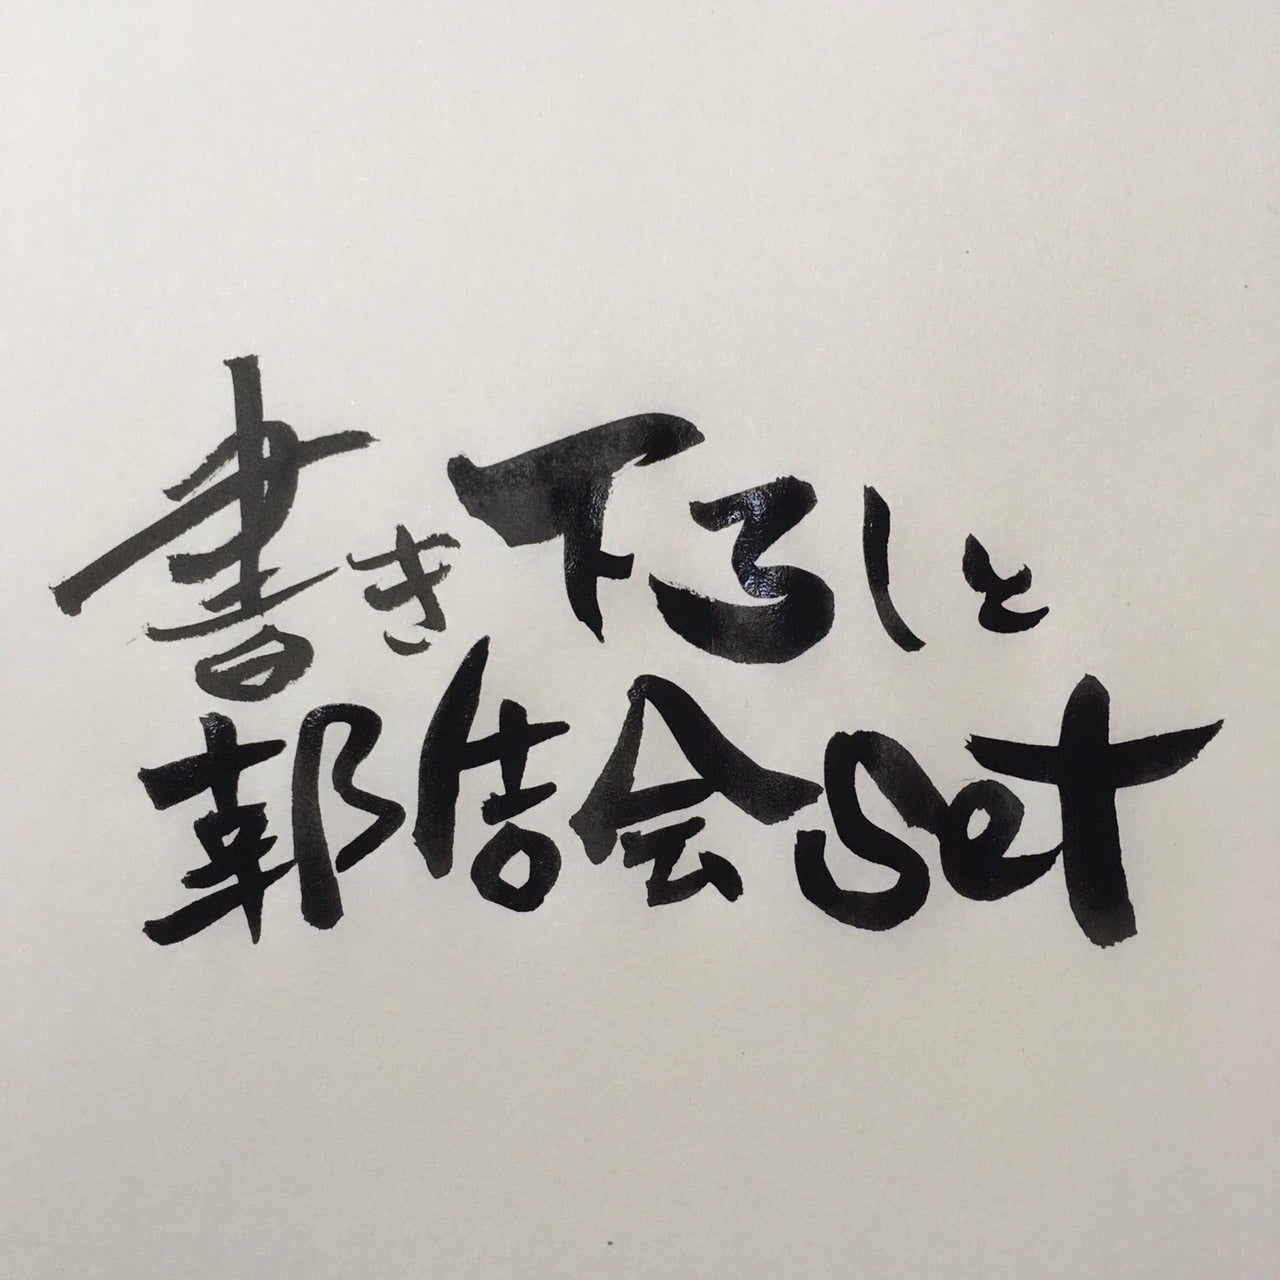 書き下ろしと
報告会set